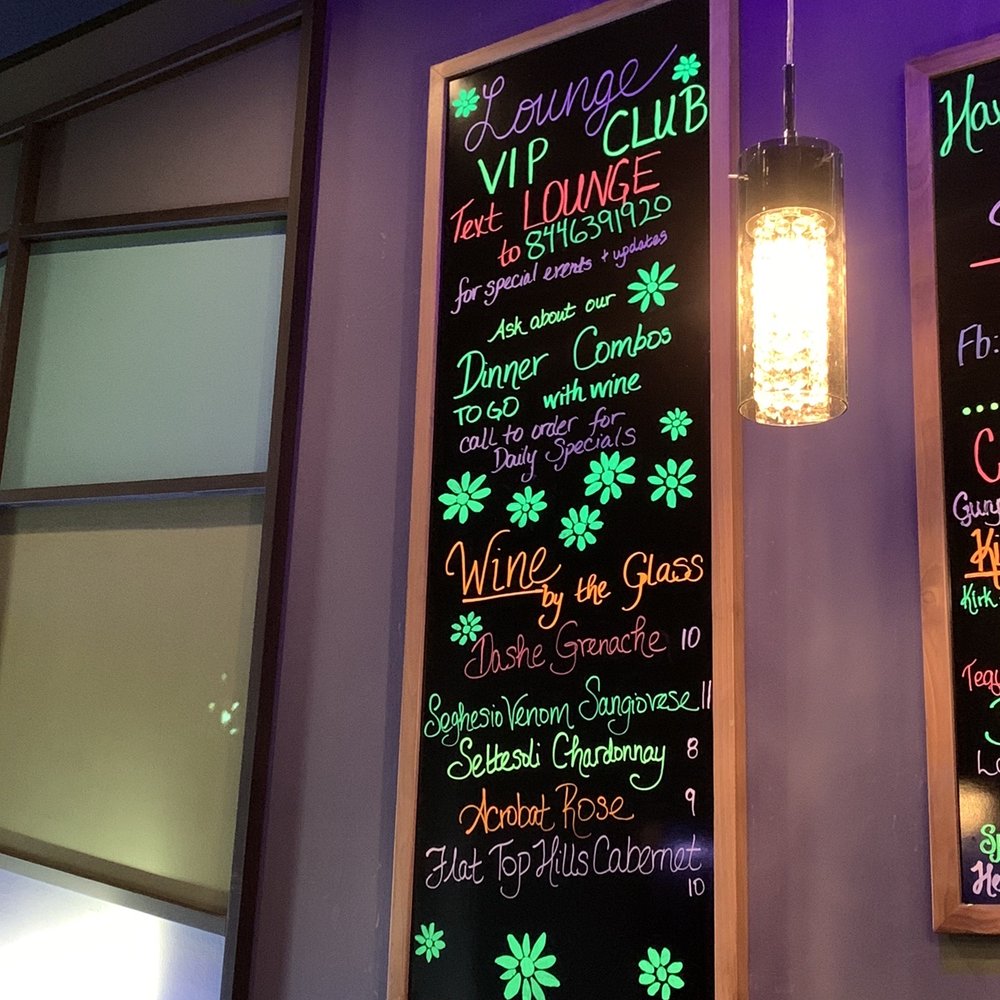 Lounge
VIP CLUB
Text LOUNGE
to 8446391920
for special events + updates
Ask about our
Dinner Combos
TO GO with wine
call to order for
Daily Specials
Wine
by the Glass
Dashe Grenache 10
Seghesio Venom Sangiovese 11
Settesoli Chardonnay 8
Acrobat Rose 9
Flat Top Hills Cabernet
10
Fb:
Kirk